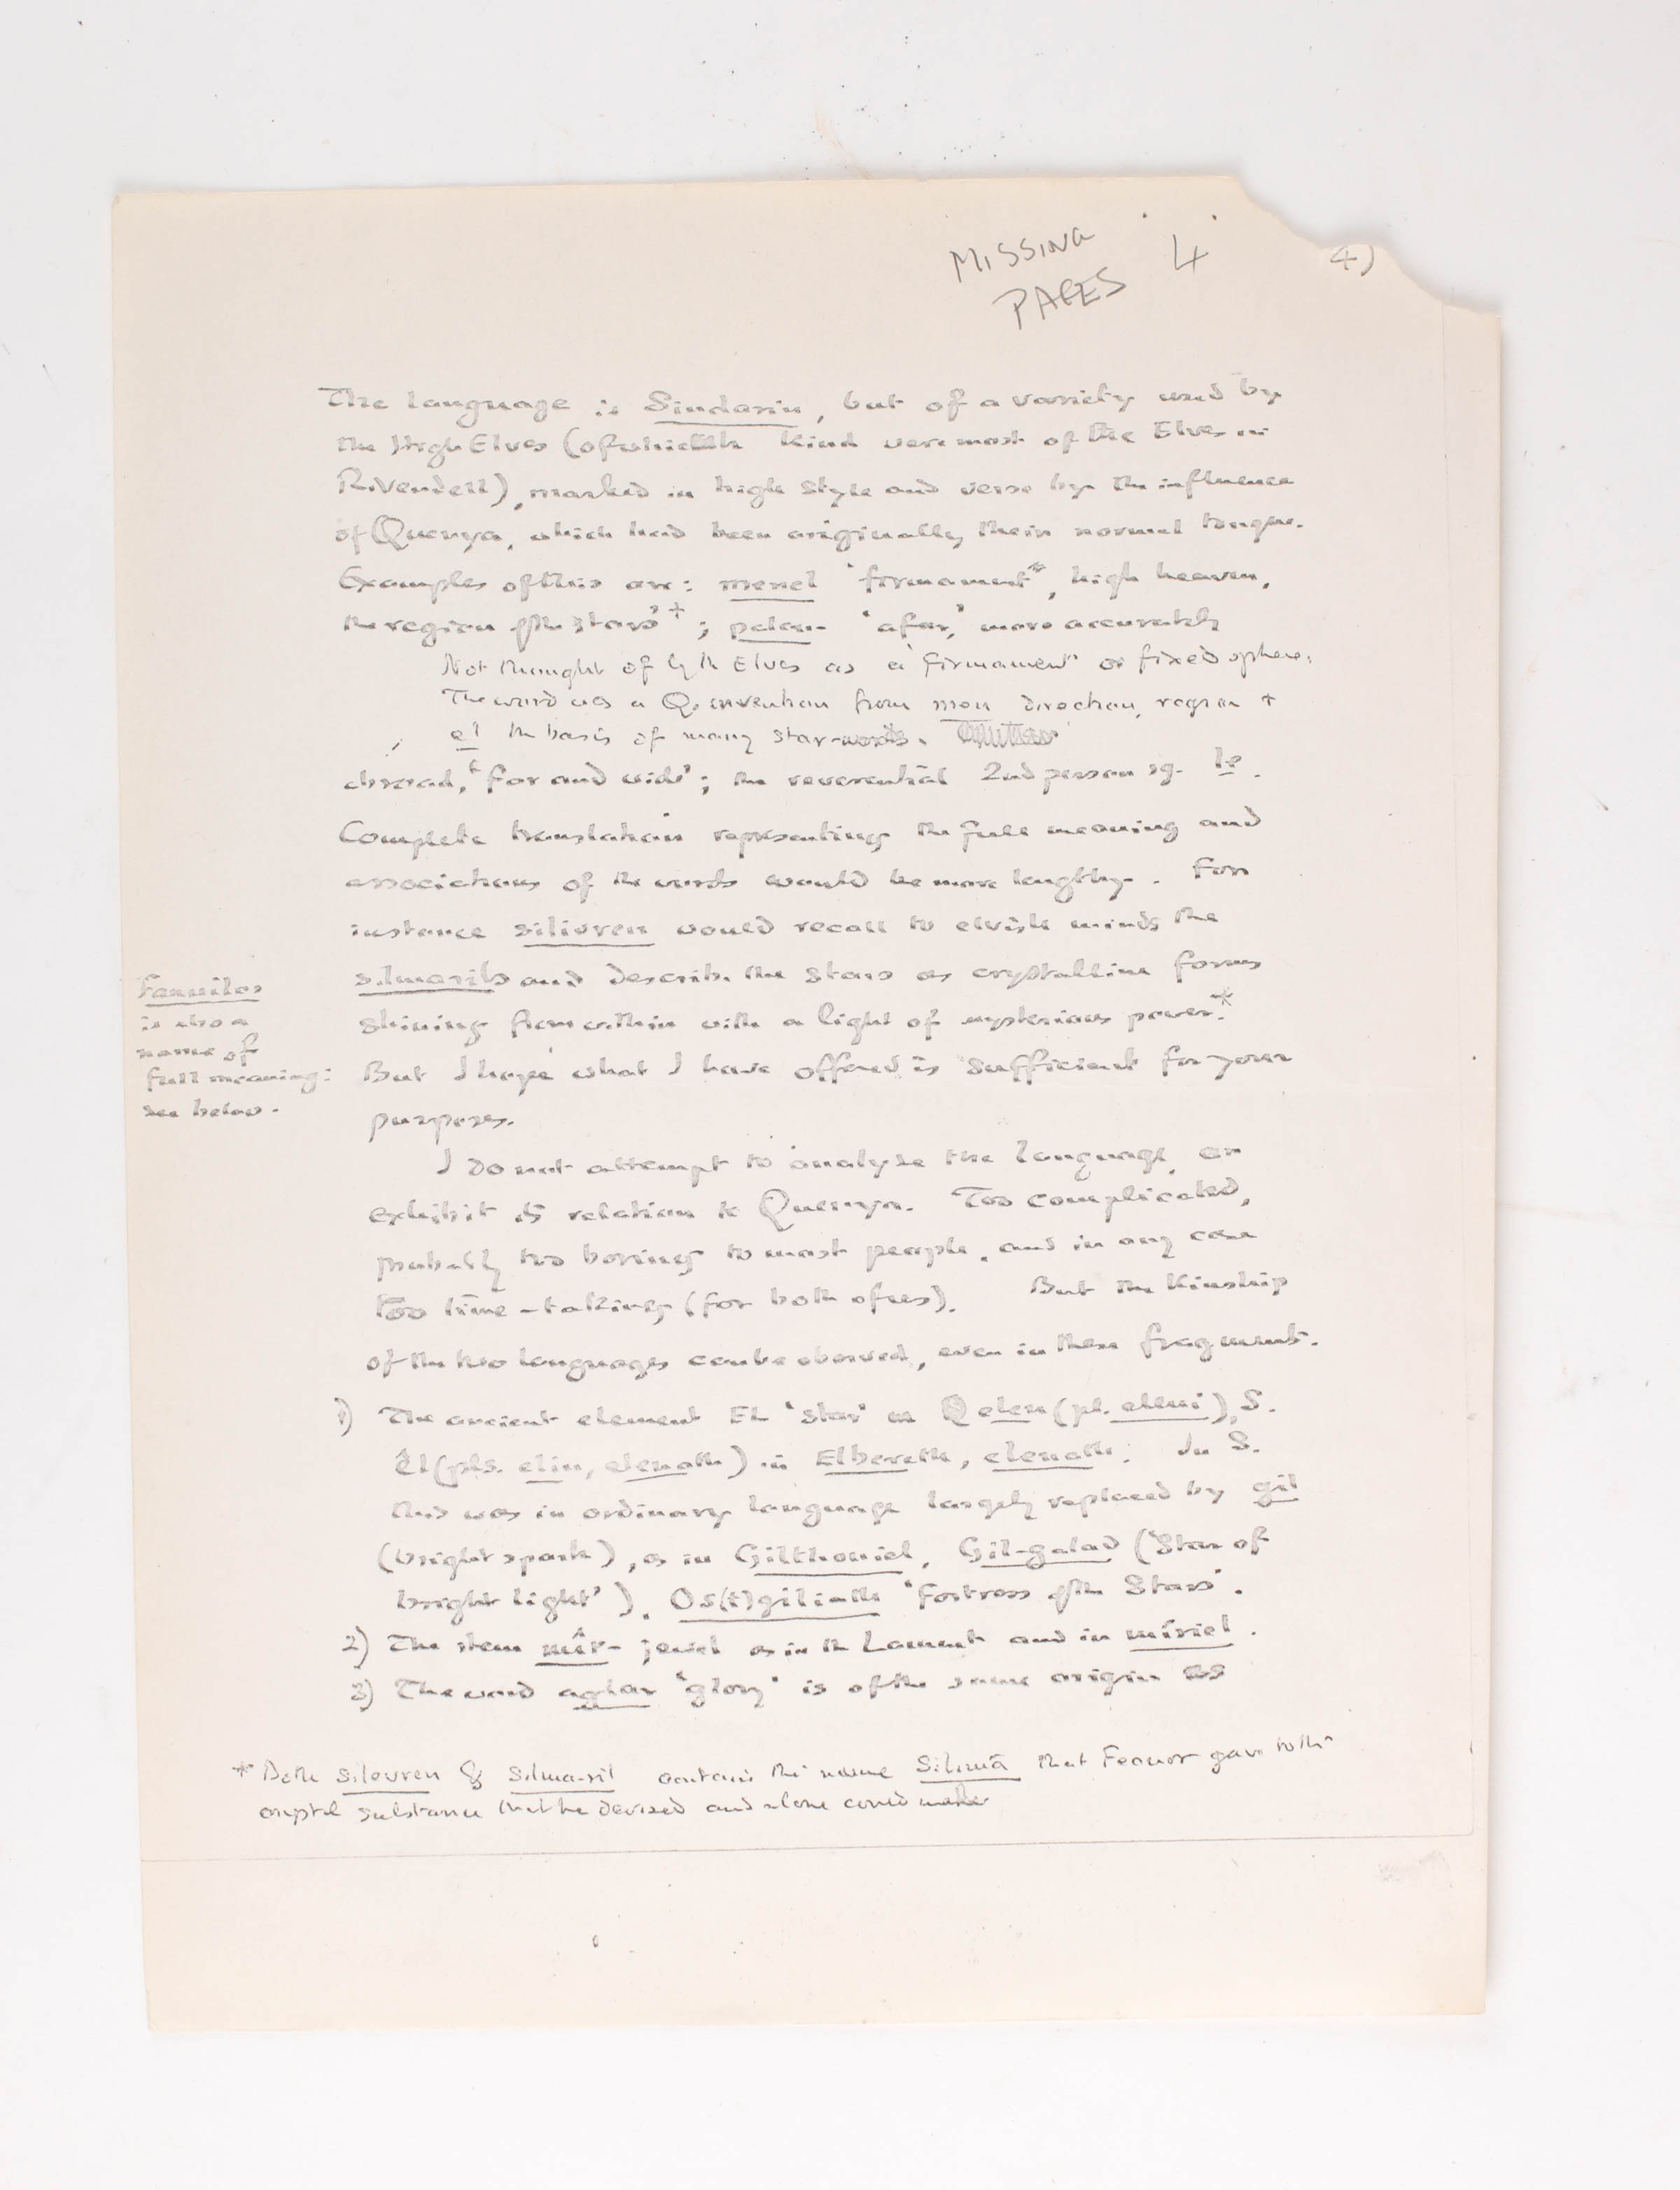 MISSING
PAGES 4
4)
The language is Sindarin, but of a variety used by
the High Elves (of which kind were most of the Elves in
Rivendell), marked in high style and verse by the influence
of Quenya, which had been originally their normal tongue.
Examples of this are: menel 'firmament*, high heaven,
the region of the stars'+; palan- 'afar,' more accurately
Not thought of by th Elves as a 'firmament' or fixed sphere:
The word was a Q. invention from men direction, region +
el the basis of many star-words.
abroad, 'far and wide'; the reverential 2nd person sg. le.
Complete translation representing the full meaning and
associations of the words would be more lengthy. For
instance silivren would recall to elvish minds the
silmarils and describe the stars as crystalline forms
shining from within with a light of mysterious power.*
Fanuilos
is also a
name of
full meaning:
see below.
But I hope what I have offered is sufficient for your
purposes.
I do not attempt to analyse the language, or
exhibit its relation to Quenya. Too complicated,
probably too boring to most people, and in any case
too time-taking (for both of us). But the kinship
of the two languages can be observed, even in these fragments.
1) The ancient element EL 'star' in Q elen (pl. eleni), S.
êl (pls. elin, elenath) in Elbereth, elenath. In S.
this was in ordinary language largely replaced by gil
(bright spark), as in Gilthoniel, Gil-galad ('Star of
bright light'). Os(t)giliath 'Fortress of the Stars'.
2) The stem mîr- jewel as in th Lament and in míriel.
3) The word aglar 'glory' is of the same origin as
* Both silevren & Silma-ril contain the name Silimā that Feanor gave to the
crystal substance that he devised and alone could make